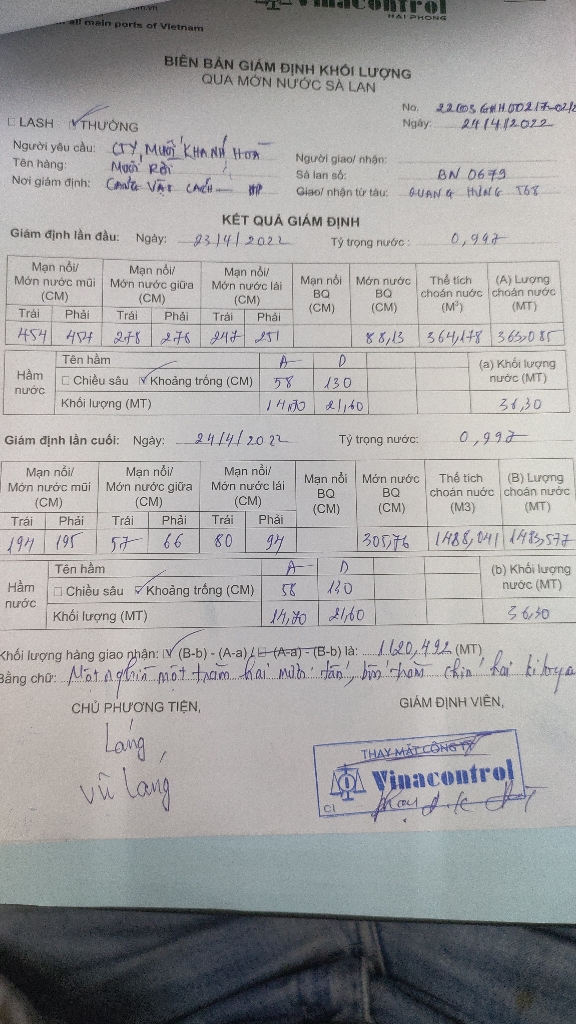 all main ports of Vietnam
Vinacontrol
HAI PHONG
BIÊN BẢN GIÁM ĐỊNH KHỐI LƯỢNG
QUA MỚN NƯỚC SÀ LAN
No.
□ LASH ☑ THƯỜNG Ngày: 24/4/2022
Người yêu cầu: CTY MUỐI KHÁNH HOÀ Người giao/ nhận:
Tên hàng: MUỐI RỜI Sà lan số: BN 0679
Nơi giám định: CẢNG VẬT CÁCH - HP Giao/ nhận từ tàu: QUANG HƯNG T68
KẾT QUẢ GIÁM ĐỊNH
Giám định lần đầu: Ngày: 23/4/2022 Tỷ trọng nước: 0,997
Mạn nổi/ Mớn nước mũi (CM) Mạn nổi/ Mớn nước giữa (CM) Mạn nổi/ Mớn nước lái (CM) Mạn nổi BQ (CM) Mớn nước BQ (CM) Thể tích choán nước (M³) (A) Lượng choán nước (MT)
Trái Phải Trái Phải Trái Phải
454 457 278 276 247 251 88,13 364,178 363,085
Hầm nước
Tên hầm A D (a) Khối lượng nước (MT)
□ Chiều sâu ☑ Khoảng trống (CM) 58 130
Khối lượng (MT) 14,70 21,60 36,30
Giám định lần cuối: Ngày: 24/4/2022 Tỷ trọng nước: 0,997
Mạn nổi/ Mớn nước mũi (CM) Mạn nổi/ Mớn nước giữa (CM) Mạn nổi/ Mớn nước lái (CM) Mạn nổi BQ (CM) Mớn nước BQ (CM) Thể tích choán nước (M3) (B) Lượng choán nước (MT)
Trái Phải Trái Phải Trái Phải
194 195 57 66 80 94 305,76 1488,041 1483,577
Hầm nước
Tên hầm A D (b) Khối lượng nước (MT)
□ Chiều sâu ☑ Khoảng trống (CM) 58 130
Khối lượng (MT) 14,70 21,60 36,30
Khối lượng hàng giao nhận: ☑ (B-b) - (A-a) / □ (A-a) - (B-b) là: 1120,492 (MT)
Bằng chữ: Một nghìn một trăm hai mươi tấn, bốn trăm chín hai kilogam
CHỦ PHƯƠNG TIỆN, GIÁM ĐỊNH VIÊN,
Lang
Vũ Lang
THAY MẶT CÔNG TY
Vinacontrol
CI